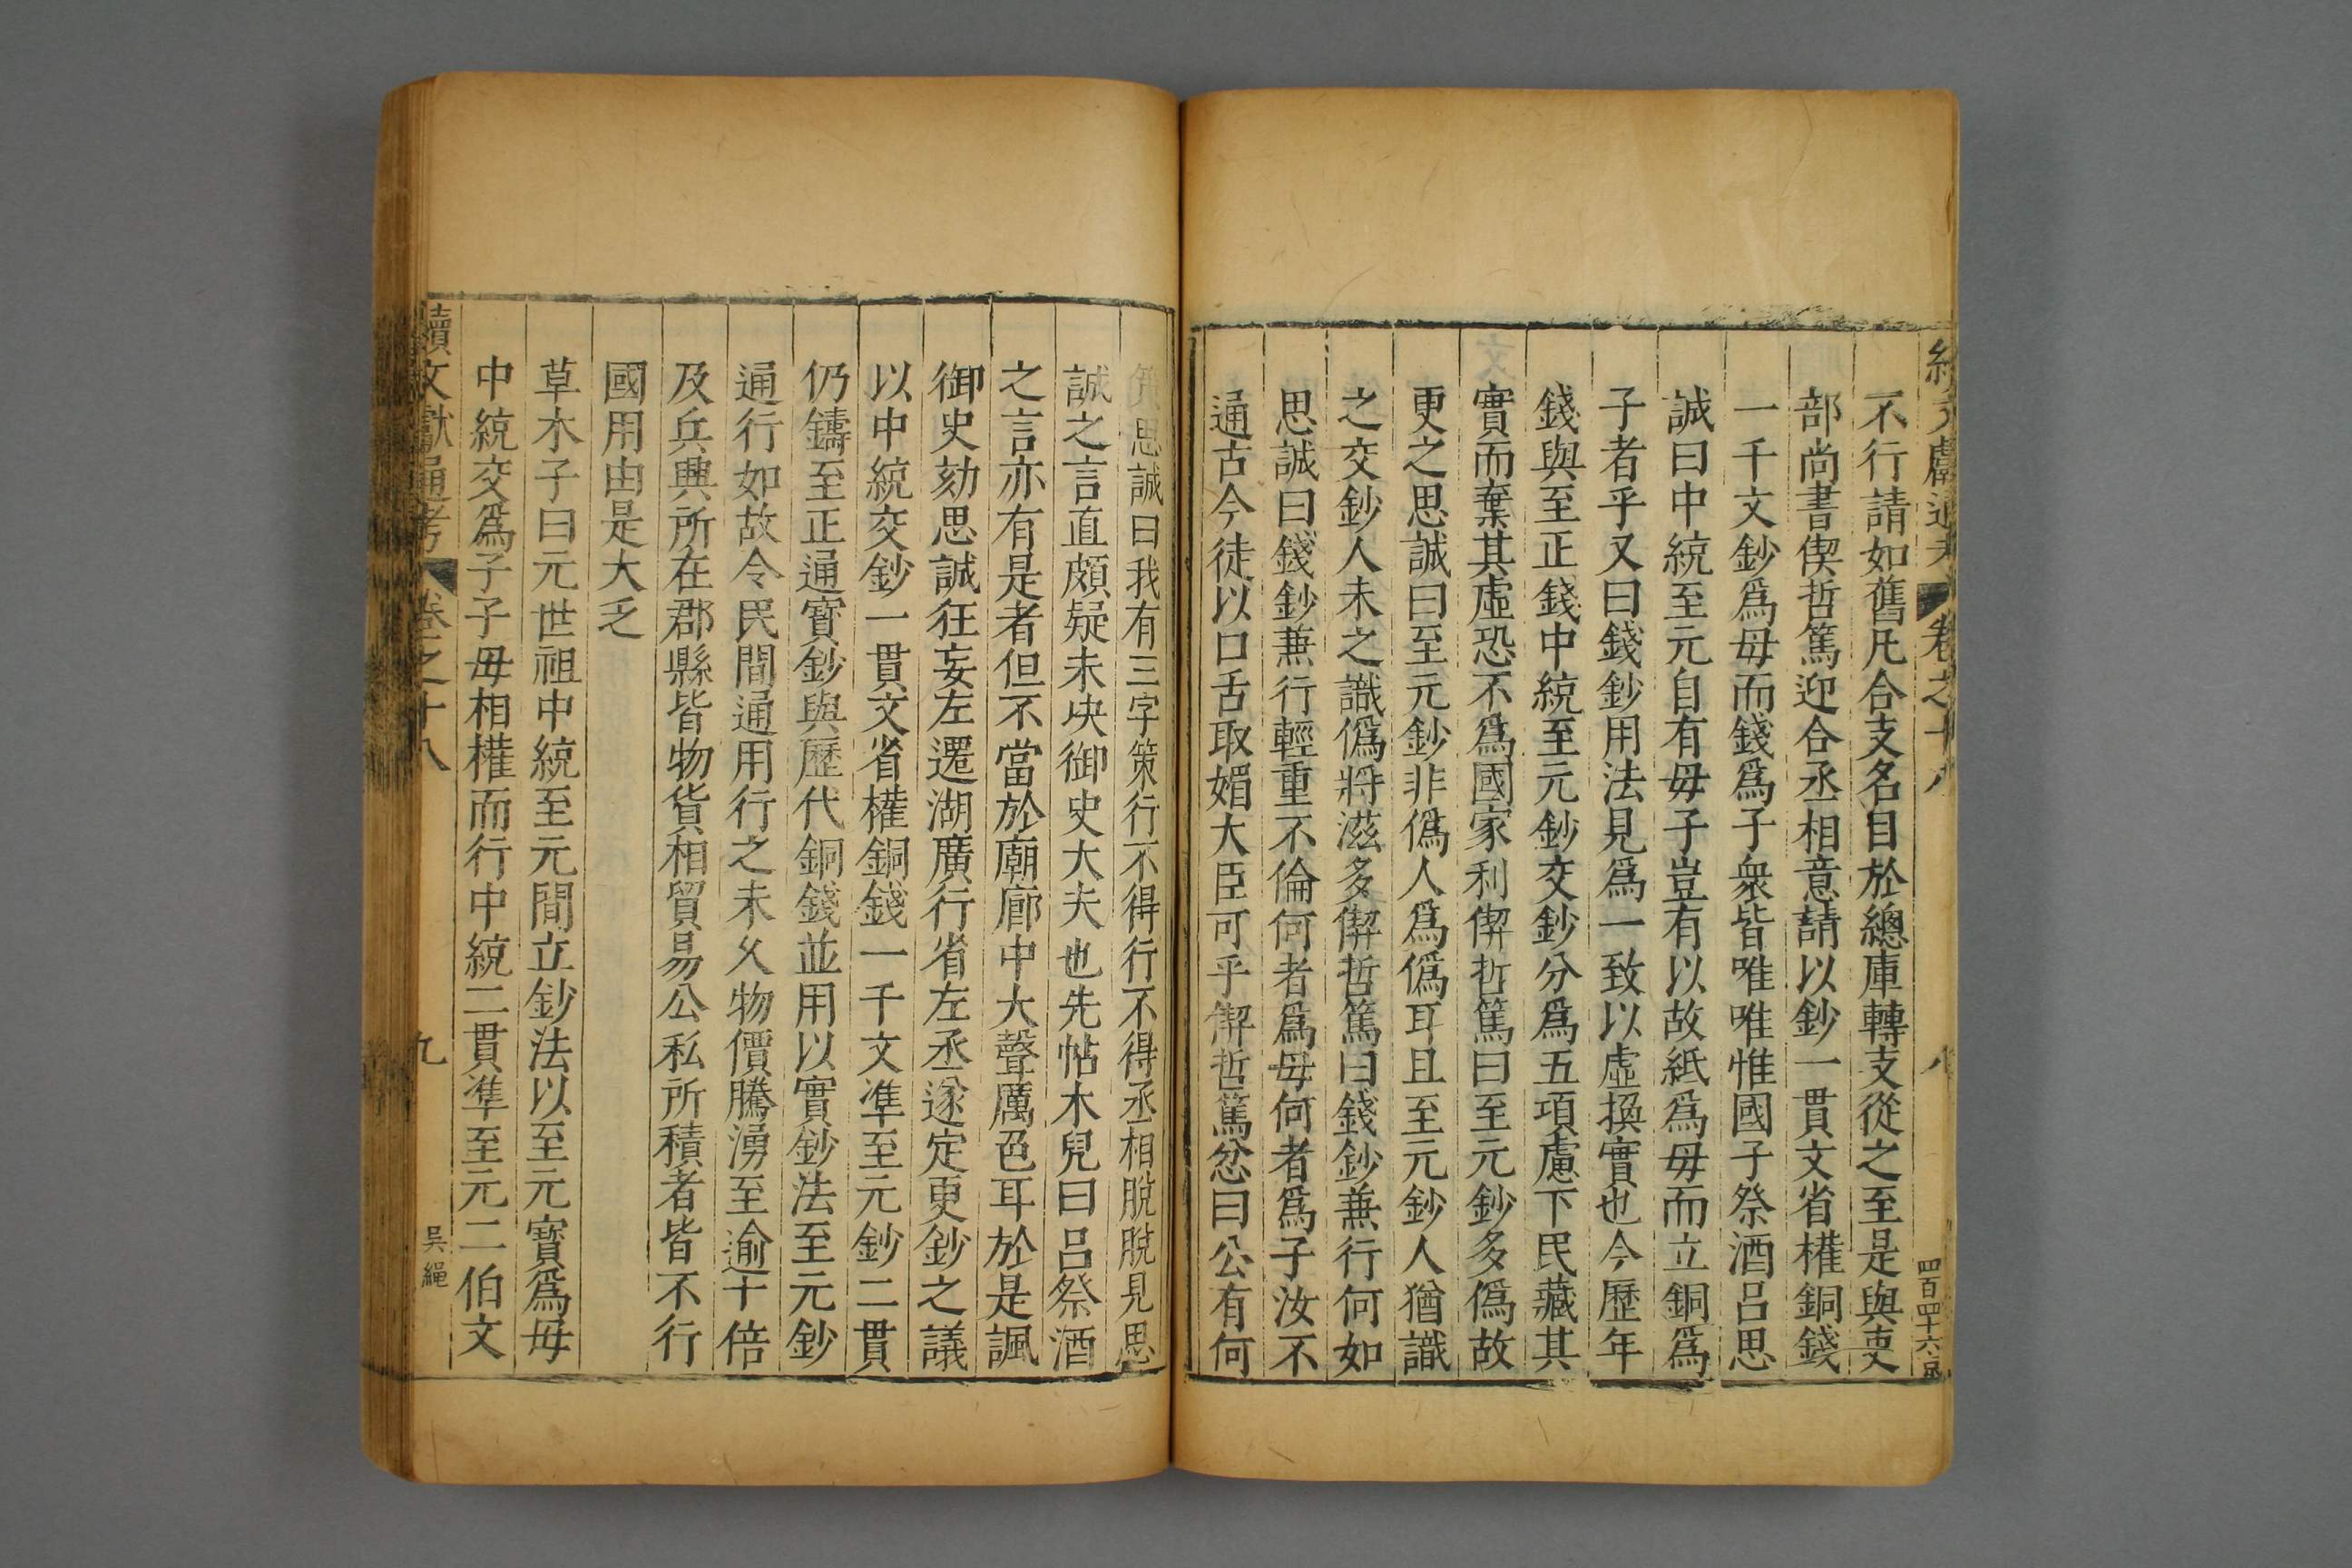 續文獻通考 卷之十八 八 四百四十六
不行請如舊凡合支名目於總庫轉支從之至是與吏
部尚書偰哲篤迎合丞相意請以鈔一貫文省權銅錢
一千文鈔爲母而錢爲子衆皆唯唯惟國子祭酒呂思
誠曰中統至元自有母子豈有以故紙爲母而立銅爲
子者乎又曰錢鈔用法見爲一致以虛換實也今歷年
錢與至正錢中統至元鈔交鈔分爲五項慮下民藏其
實而棄其虛恐不爲國家利偰哲篤曰至元鈔多僞故
更之思誠曰至元鈔非僞人爲僞耳且至元鈔人猶識
之交鈔人未之識僞將滋多偰哲篤曰錢鈔兼行何如
思誠曰錢鈔兼行輕重不倫何者爲母何者爲子汝不
通古今徒以口舌取媚大臣可乎偰哲篤忿曰公有何
策思誠曰我有三字策行不得行不得丞相脫脫見思
誠之言直頗疑未决御史大夫也先帖木兒曰呂祭酒
之言亦有是者但不當於廟廊中大聲厲色耳於是諷
御史劾思誠狂妄左遷湖廣行省左丞遂定更鈔之議
以中統交鈔一貫文省權銅錢一千文準至元鈔二貫
仍鑄至正通寶鈔與歷代銅錢並用以實鈔法至元鈔
通行如故令民間通用行之未久物價騰湧至逾十倍
及兵興所在郡縣皆物貨相貿易公私所積者皆不行
國用由是大乏
草木子曰元世祖中統至元間立鈔法以至元寶爲母
中統交爲子子母相權而行中統二貫準至元二伯文
續文獻通考 卷之十八 九 吳繩